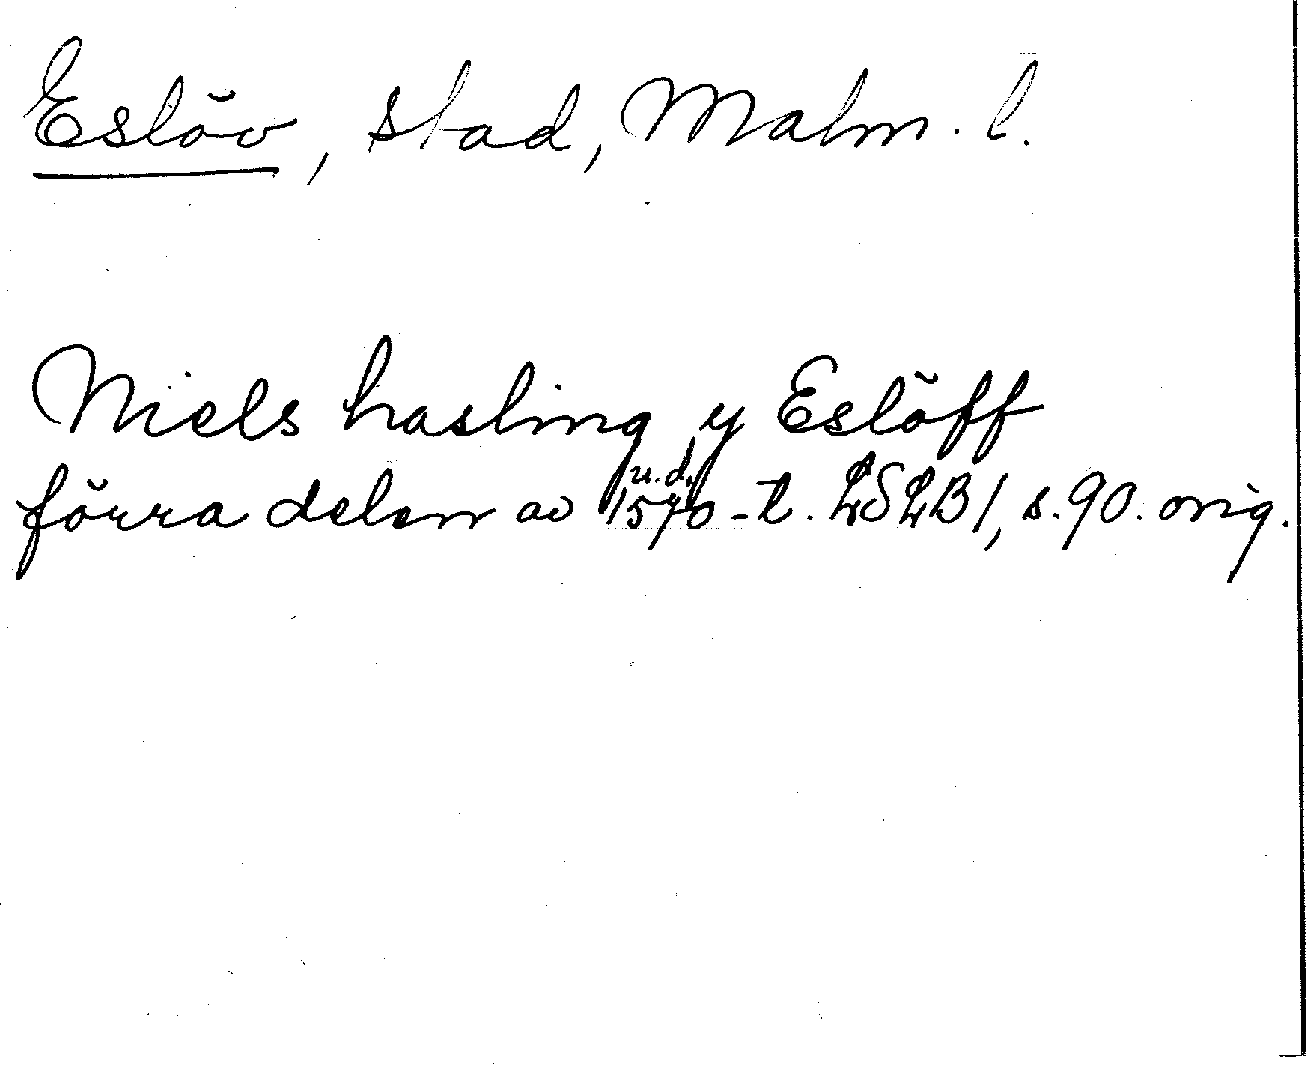 Eslöv, stad, Malm. l.
Niels hasling y Eslöff
u.d.
förra delen av 1570-t. LSLB I, s. 90. orig.